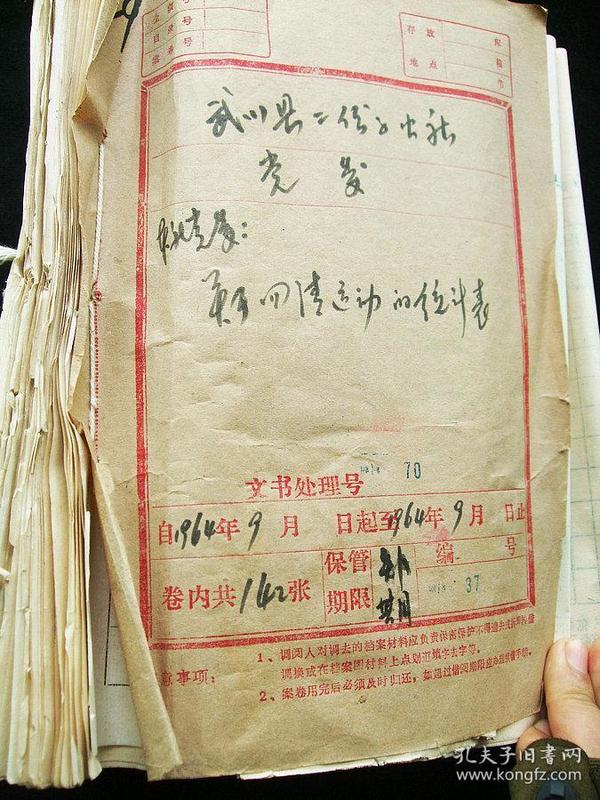 号
号
存放
地点
库
箱
节
武川县二份子公社
党委
关于四清运动的统计表
70
文书处理号
自1964年9月 日起至1964年9月 日止
卷内共142张
保管期限
编 号
37
注意事项:
1、调阅人对调去的档案材料应负责保密保护不得遗失
调换或在档案图材料上点划道填字去字等。
2、案卷用完后必须及时归还,如超过借阅期限应办理续借手续。
孔夫子旧书网
www.kongfz.com